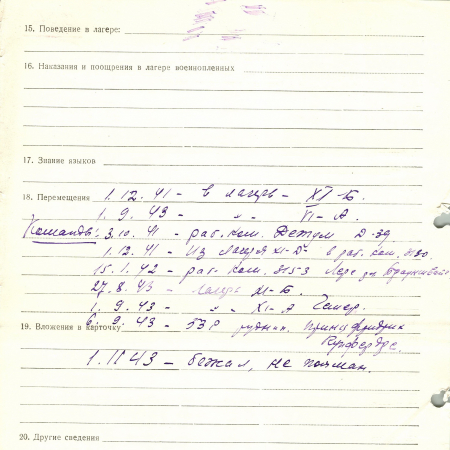 15. Поведение в лагере:
16. Наказания и поощрения в лагере военнопленных
17. Знание языков
18. Перемещения 1.12.41 – в лагерь – XI-Б.
1.9.43 – " – VI-А.
Команды: 3.10.41 – раб. ком. Детум Д-39
1.12.41 – Из лагеря XI-Д в раб. ком. 
15.1.42 – раб. ком. Лере
27.8.43 – Лагерь XI-Б.
1.9.43 – " " VI-А Гемер.
19. Вложения в карточку 6.9.43 – рудник. Принц Фридрих
1.11.43 – бежал, не пойман.
20. Другие сведения